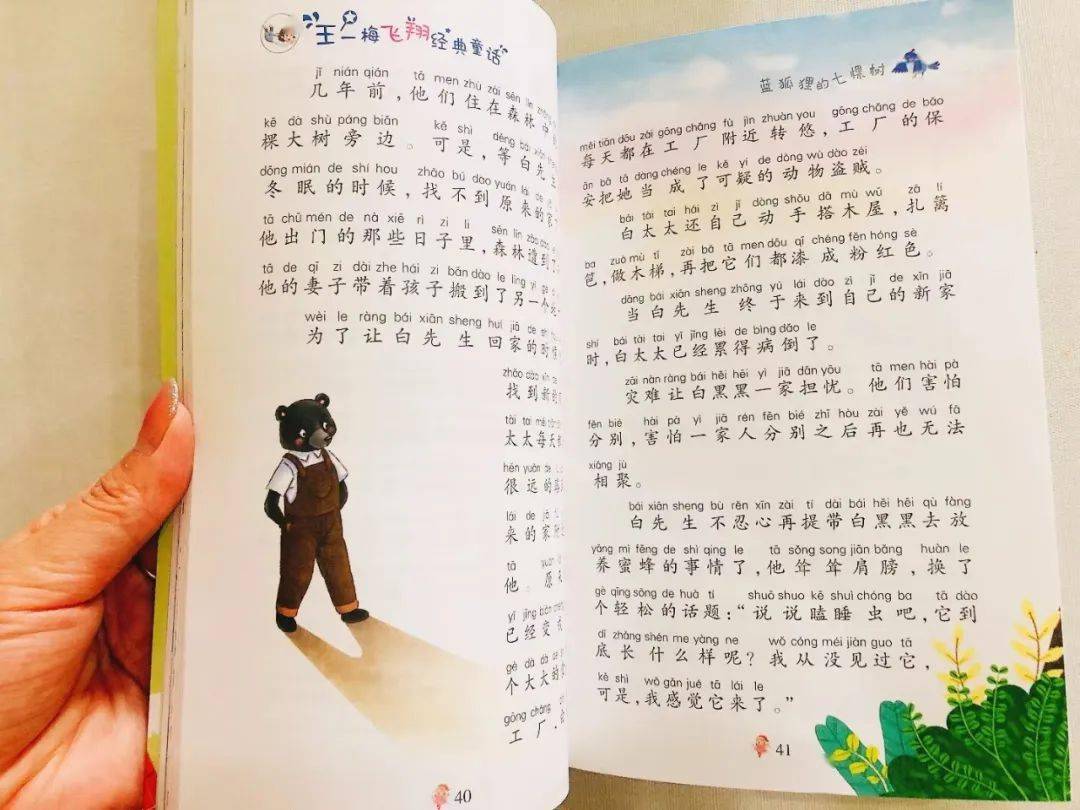 王一梅飞翔经典童话
jǐ nián qián tā men zhù zài sēn lín zhōng
几年前，他们住在森林中
kē dà shù páng biān kě shì děng bái xiān
棵大树旁边。可是，等白先生
dōng mián de shí hou zhǎo bú dào yuán lái de
冬眠的时候，找不到原来的家
tā chū mén de nà xiē rì zi li sēn lín zāo dào
他出门的那些日子里，森林遭到
tā de qī zi dài zhe hái zi bān dào le lìng yí gè
他的妻子带着孩子搬到了另一个
wèi le ràng bái xiān sheng huí jiā de shí
为了让白先生回家的时
zhǎo dào xīn
找到新的
tài tai měi
太太每天
hěn yuǎn de
很远的
lái de jiā
来的家
tā yuán
他。原
yǐ jīng biàn
已经变
gè dà dà de
个大大的
gōng chǎng
工厂，
40
蓝狐狸的七棵树
měi tiān dōu zài gōng chǎng fù jìn zhuàn you gōng chǎng de bǎo
每天都在工厂附近转悠，工厂的保
ān bǎ tā dàng chéng le kě yí de dòng wù dào zéi
安把她当成了可疑的动物盗贼。
bái tài tai hái zì jǐ dòng shǒu dā mù wū zā lí
白太太还自己动手搭木屋，扎篱
ba zuò mù tī zài bǎ tā men dōu qī chéng fěn hóng sè
笆，做木梯，再把它们都漆成粉红色。
dāng bái xiān sheng zhōng yú lái dào zì jǐ de xīn jiā
当白先生终于来到自己的新家
shí bái tài tai yǐ jīng lèi de bìng dǎo le
时，白太太已经累得病倒了。
zāi nàn ràng bái hēi hēi yì jiā dān yōu tā men hài pà
灾难让白黑黑一家担忧。他们害怕
fēn bié hài pà yì jiā rén fēn bié zhī hòu zài yě wú fǎ
分别，害怕一家人分别之后再也无法
xiāng jù
相聚。
bái xiān sheng bù rěn xīn zài tí dài bái hēi hēi qù fàng
白先生不忍心再提带白黑黑去放
yǎng mì fēng de shì qing le tā sǒng song jiān bǎng huàn le
养蜜蜂的事情了，他耸耸肩膀，换了
gè qīng sōng de huà tí shuō shuo kē shuì chóng ba tā dào
个轻松的话题：“说说瞌睡虫吧，它到
dǐ zhǎng shén me yàng ne wǒ cóng méi jiàn guo tā
底长什么样呢？我从没见过它，
kě shì wǒ gǎn jué tā lái le
可是，我感觉它来了。”
41